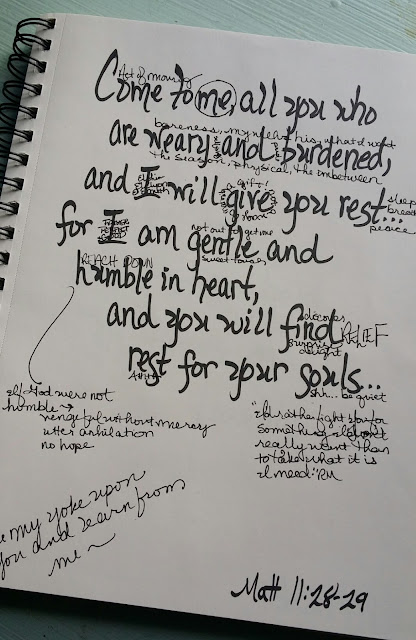 Act of moving
Come to me, all you who
bareness, my near his, what I want
are weary and burdened,
the season, physical, the inbetween
a gift!
and I will give you rest...
sleep
breath
peace
for I am gentle and
not out to get me
sweet touch
REACH DOWN
humble in heart,
and you will find
discover
surprise
delight
RELIEF
rest for your souls...
Ahhh
shh... be quiet
if God were not
humble →
vengeful without mercy
utter anhilation
no hope
"I'd rather fight you for
something I don't
really want than
to take what it is
I need." RM
my yoke upon
you and learn from
me ~
Matt 11:28-29